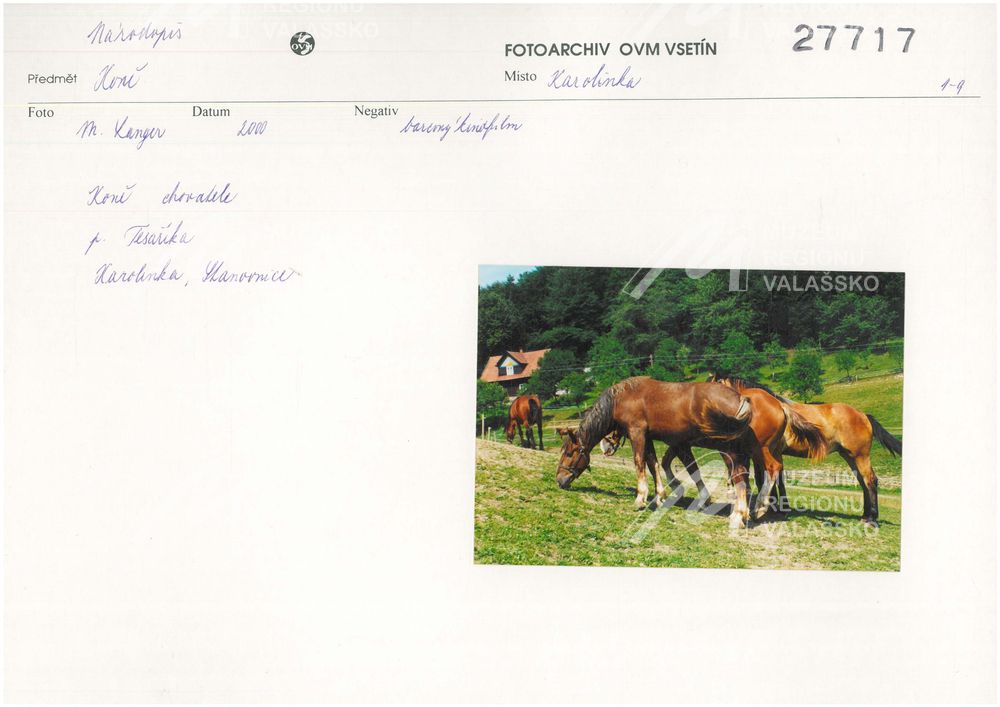 Národopis
OVM
FOTOARCHIV OVM VSETÍN
27717
Předmět Koně
Místo Karolinka
1-9
Foto M. Langer
Datum 2000
Negativ barevný kinofilm
Koně chovatele
p. Tesaříka
Karolinka, Stanovnice
MUZEUM
REGIONU
VALAŠSKO
MUZEUM
REGIONU
VALAŠSKO
REGIONU
VALAŠSKO